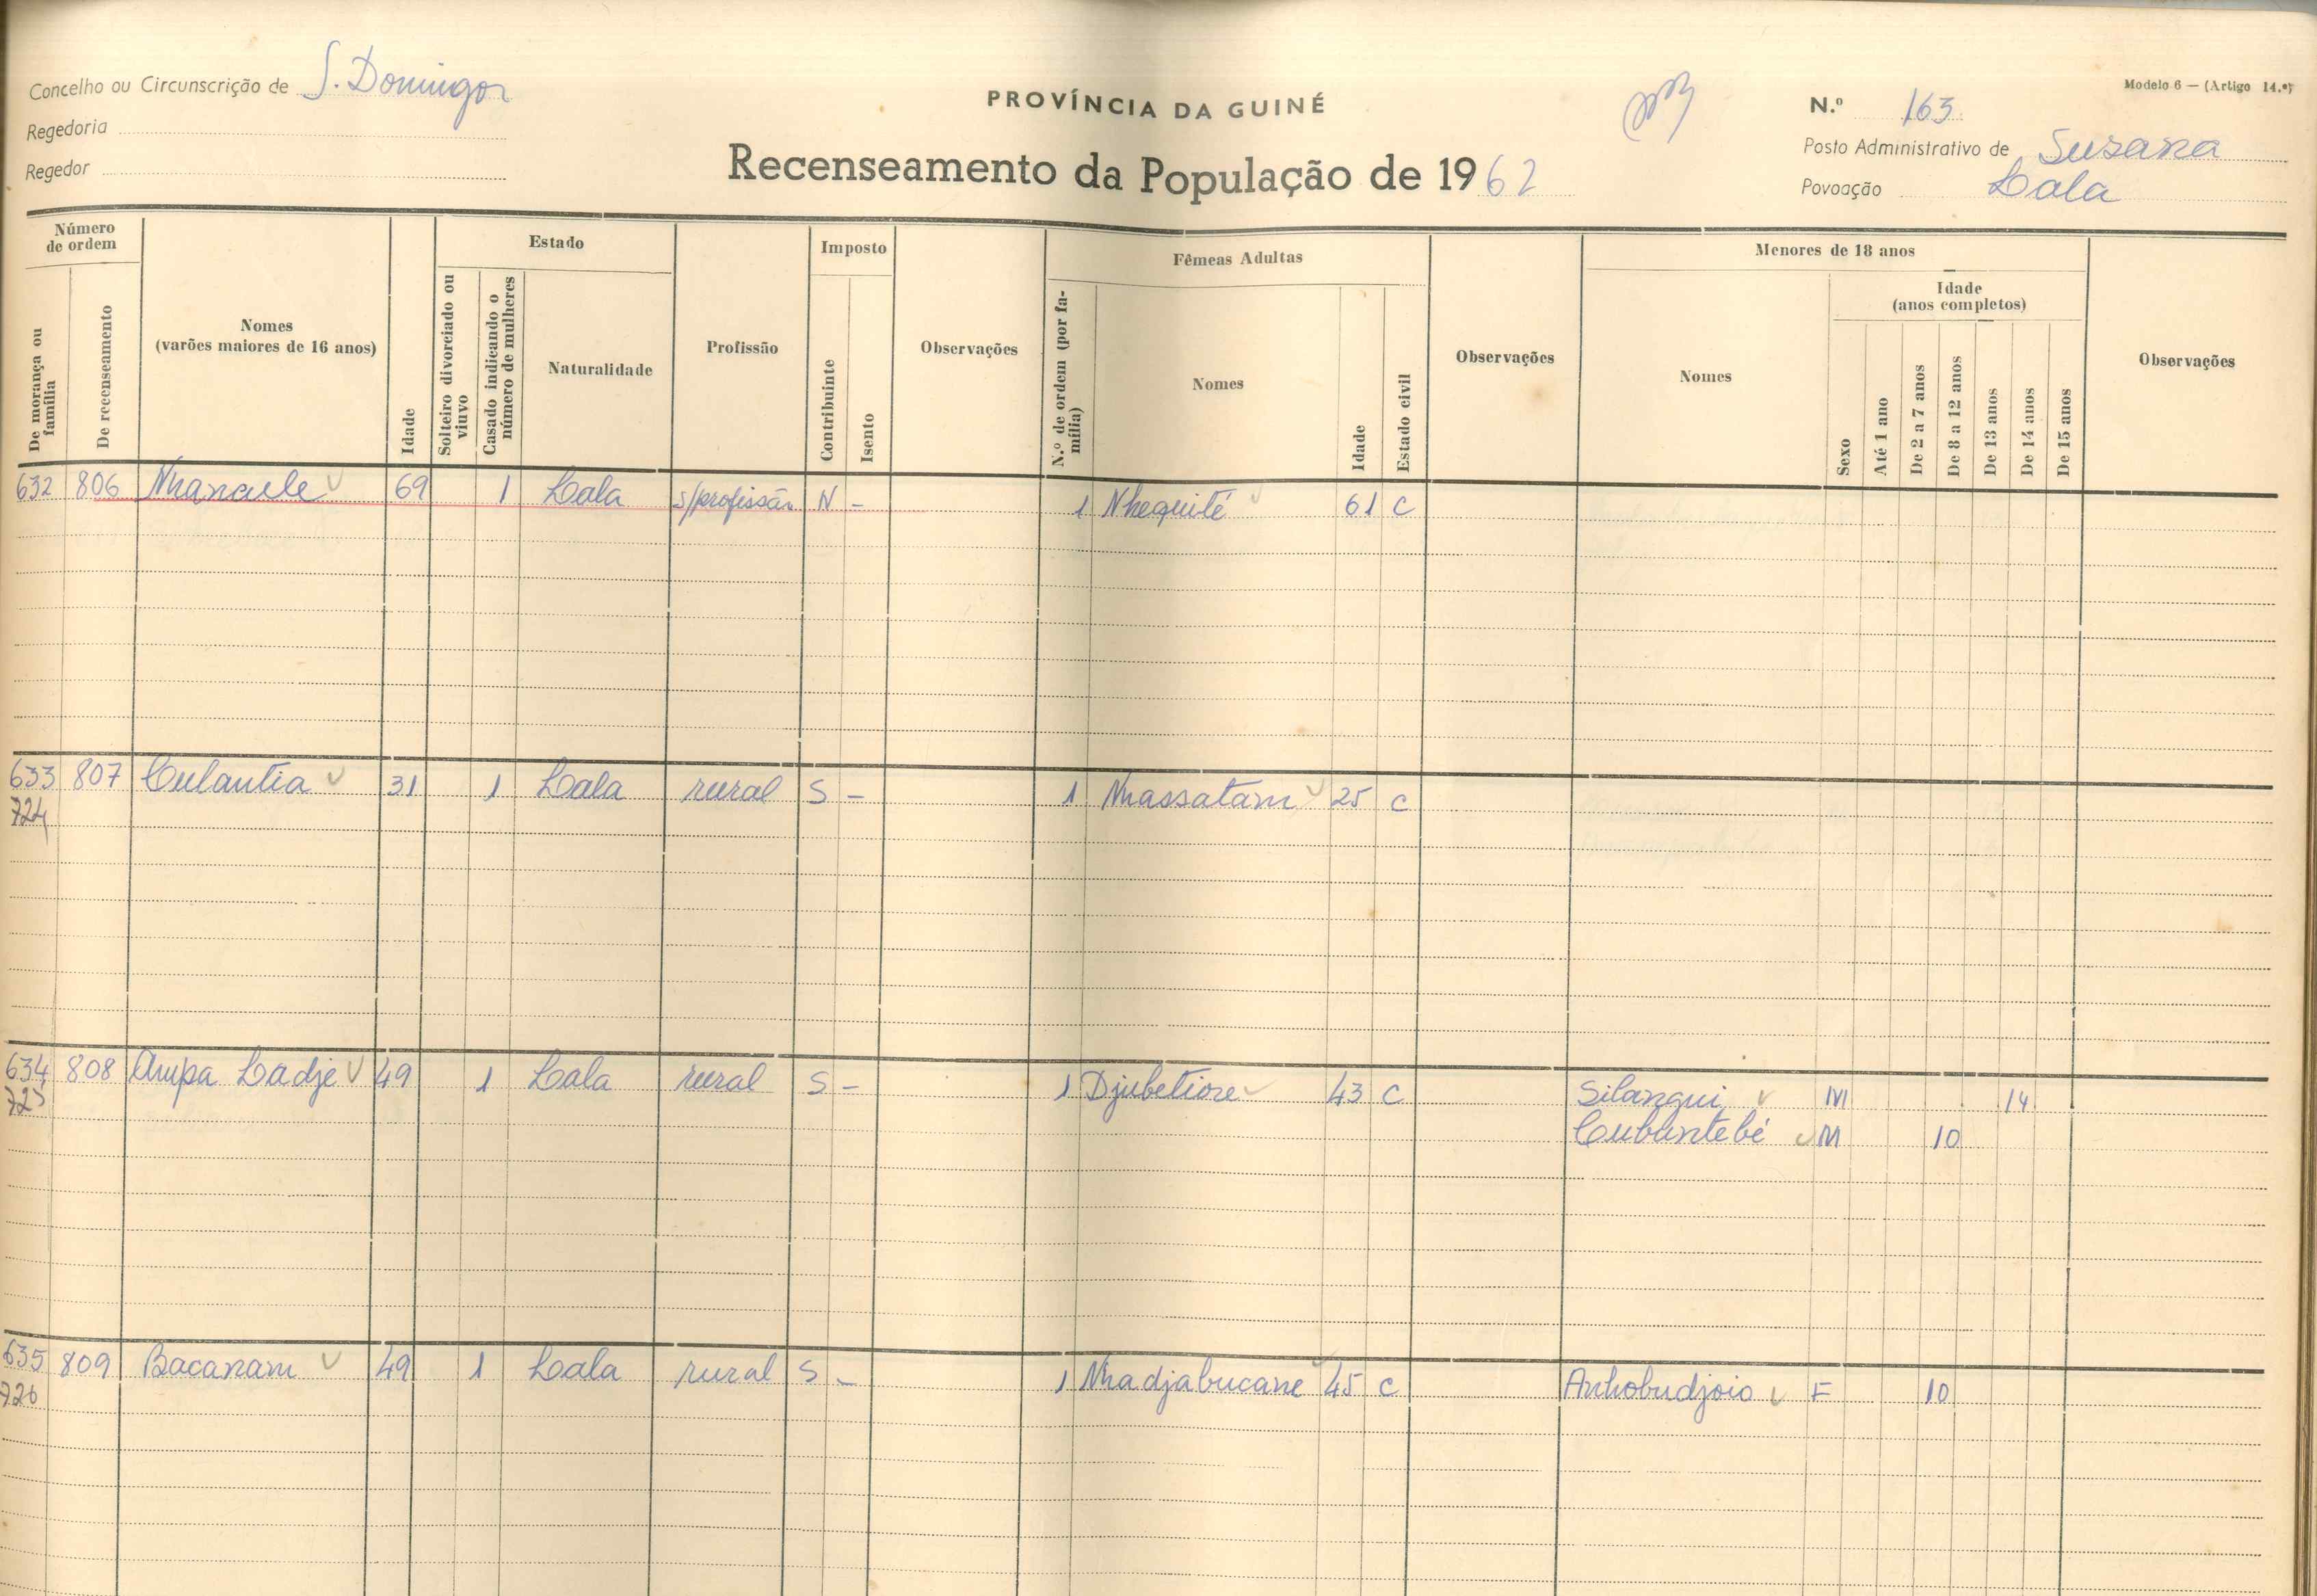 Concelho ou Circunscrição de S. Domingos
Regedoria
Regedor
PROVÍNCIA DA GUINÉ
Recenseamento da População de 1962
Modelo 6 — (Artigo 14.º)
N.º 163
Posto Administrativo de Susana
Povoação Lala
Número de ordem
De morança ou família
De recenseamento
Nomes (varões maiores de 16 anos)
Idade
Estado
Solteiro divorciado ou viuvo
Casado indicando o número de mulheres
Naturalidade
Profissão
Imposto
Contribuinte
Isento
Observações
Fêmeas Adultas
N.º de ordem (por família)
Nomes
Idade
Estado civil
Observações
Menores de 18 anos
Nomes
Sexo
Idade (anos completos)
Até 1 ano
De 2 a 7 anos
De 8 a 12 anos
De 13 anos
De 14 anos
De 15 anos
Observações
632 806 Nhanaule 69 1 Lala s/profissão N - 1 Nhequité 61 C
633 807 Culantia 31 1 Lala rural S - 1 Nhassatam 25 C
724
634 808 Ampa Ladje 49 1 Lala rural S - 1 Djubetiore 43 C Silangui M 14
725 Cubuntebé M 10
635 809 Bacanam 49 1 Lala rural S - 1 Nhadjabucane 45 C Anhobudjoio F 10
726